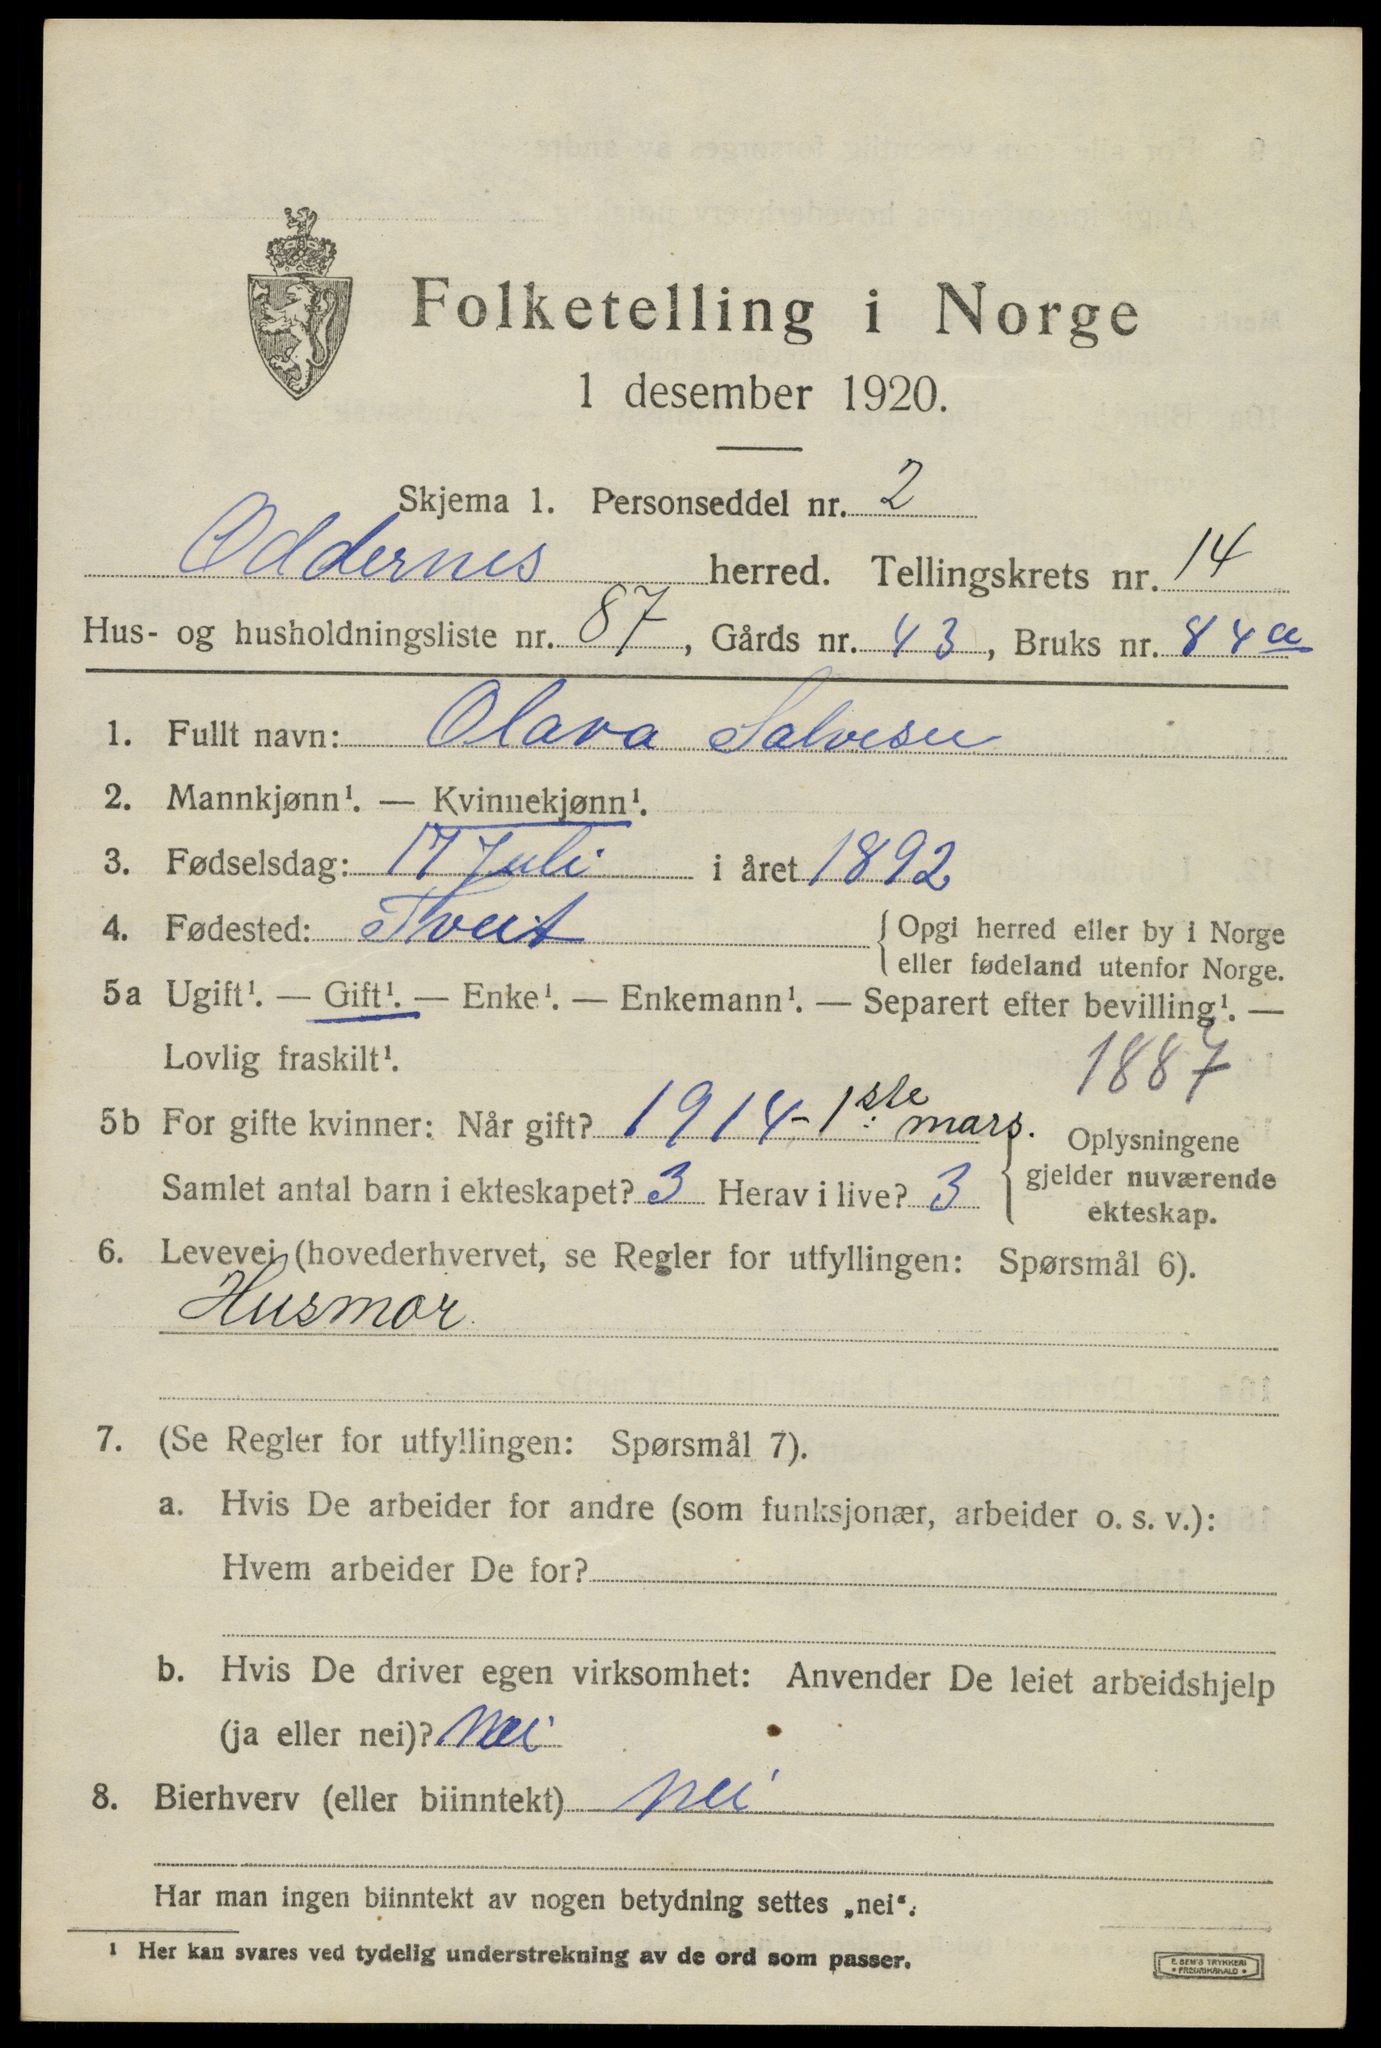 Folketelling i Norge
1 desember 1920.
Skjema 1. Personseddel nr. 2
Oddernes herred. Tellingskrets nr. 14
Hus- og husholdningsliste nr. 87, Gårds nr. 43, Bruks nr. 84 a
1. Fullt navn: Olava Salvesen
2. Mannkjønn¹. — Kvinnekjønn¹.
3. Fødselsdag: 17 Juli i året 1892
4. Fødested: Tveit {Opgi herred eller by i Norge
eller fødeland utenfor Norge.
5a Ugift¹. — Gift¹. — Enke¹. — Enkemann¹. — Separert efter bevilling¹. —
Lovlig fraskilt¹.
1887
5b For gifte kvinner: Når gift? 1914 - 1ste mars.
Samlet antal barn i ekteskapet? 3 Herav i live? 3
{Oplysningene
gjelder nuværende
ekteskap.
6. Levevei (hovederhvervet, se Regler for utfyllingen: Spørsmål 6).
Husmor.
7. (Se Regler for utfyllingen: Spørsmål 7).
a. Hvis De arbeider for andre (som funksjonær, arbeider o. s. v.):
Hvem arbeider De for?
b. Hvis De driver egen virksomhet: Anvender De leiet arbeidshjelp
(ja eller nei)? nei
8. Bierhverv (eller biinntekt) nei
Har man ingen biinntekt av nogen betydning settes „nei“.
¹ Her kan svares ved tydelig understrekning av de ord som passer.
E. SEM'S TRYKKERI
• FREDRIKSHALD •